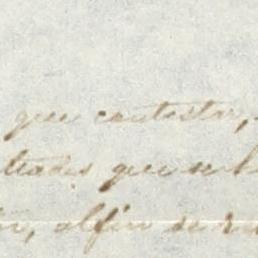 que contestar,
tades que se h
in, alfin de re